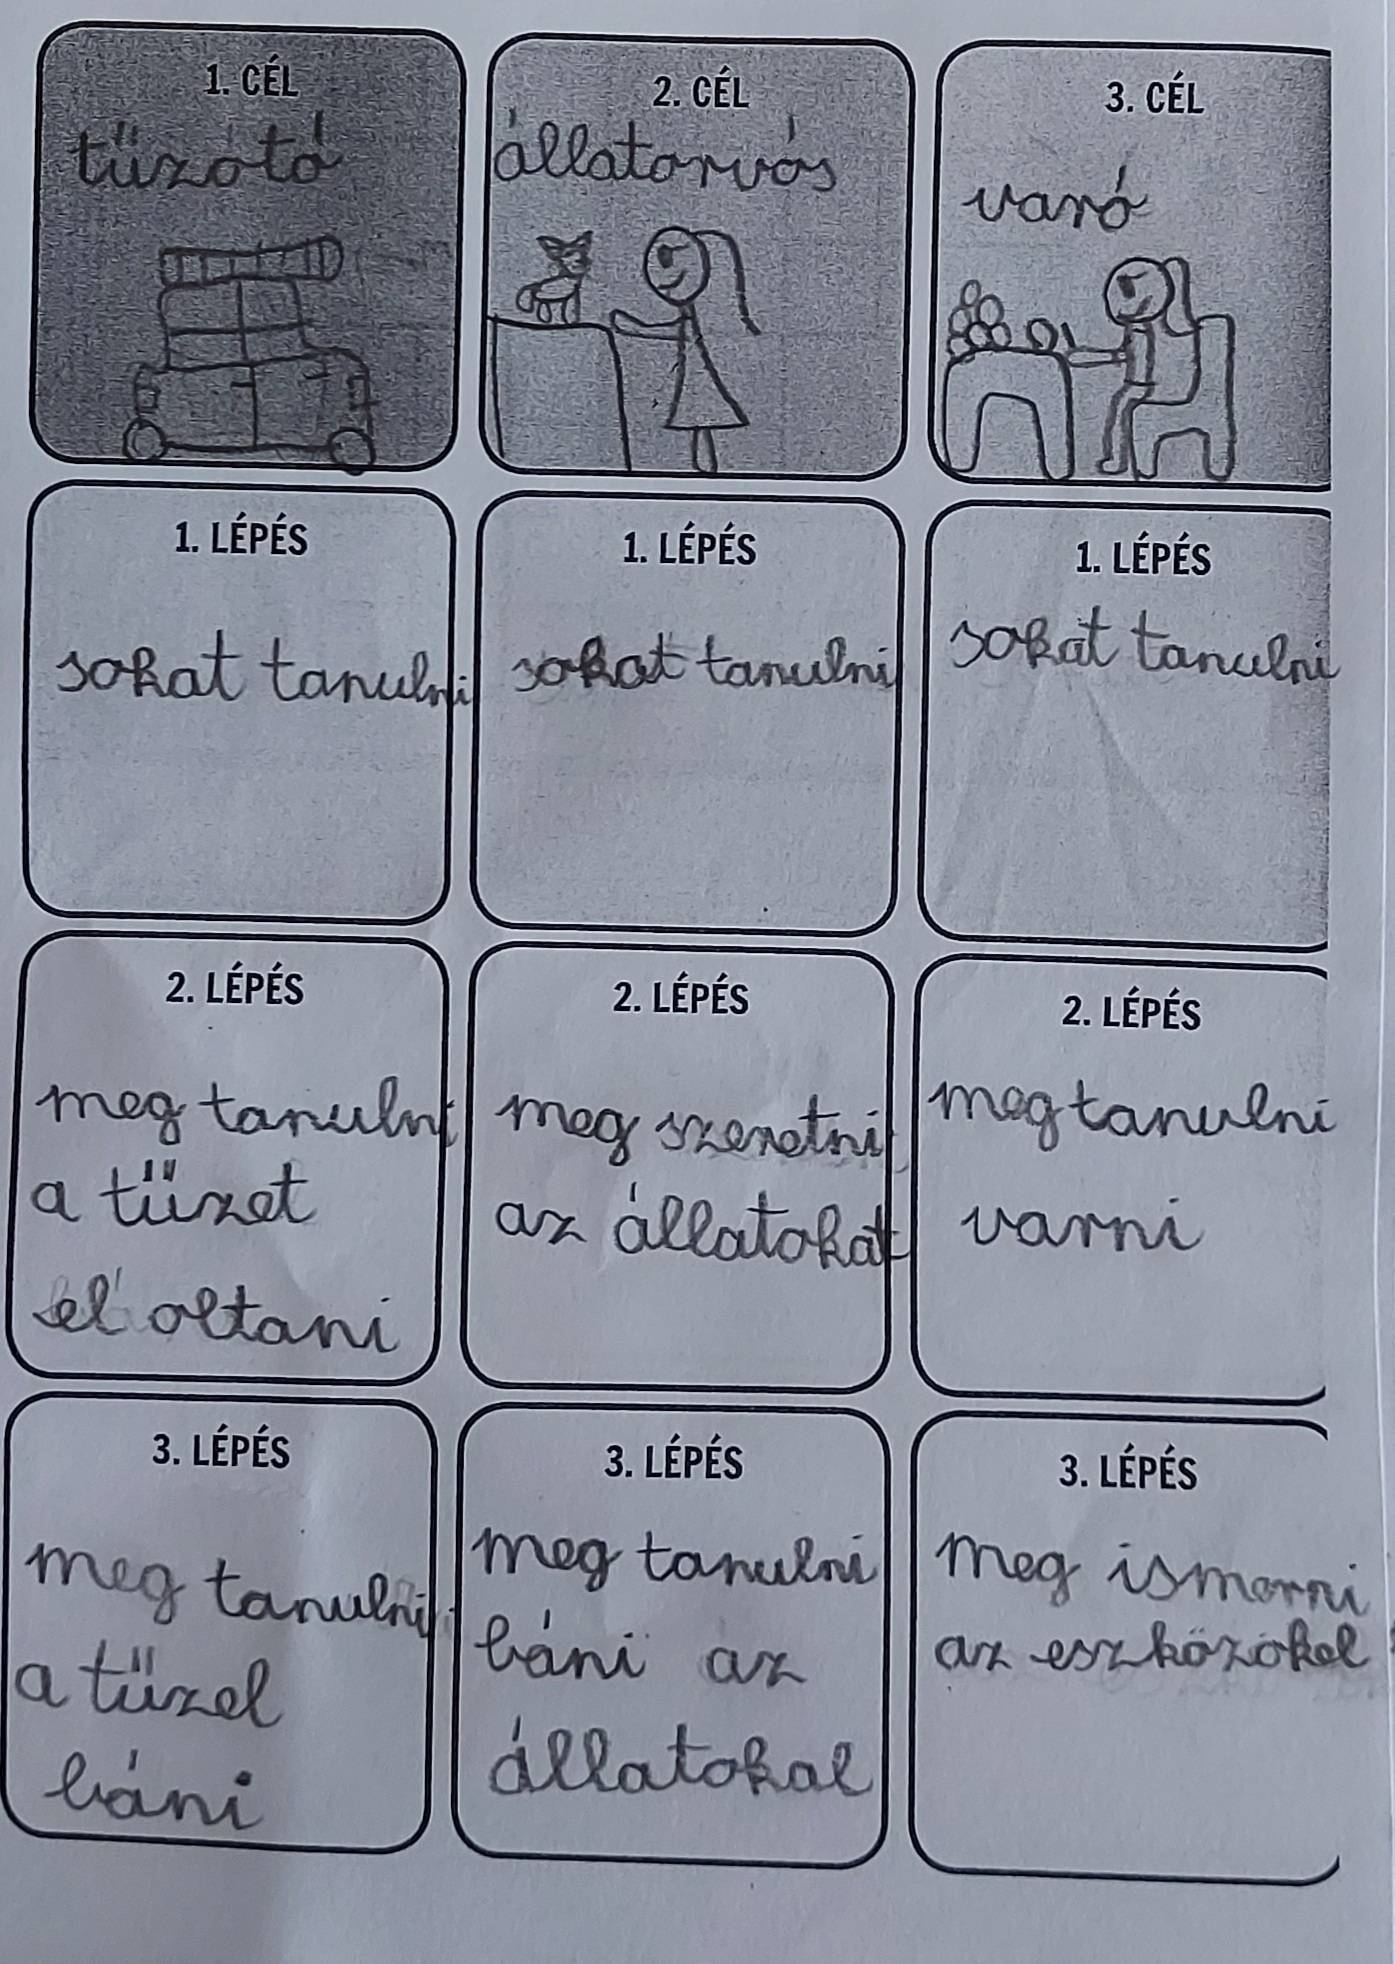 1. CÉL
tűzótó
2. CÉL
állatorvós
3. CÉL
varó
1. LÉPÉS
sokat tanulni
1. LÉPÉS
sokat tanulni
1. LÉPÉS
sokat tanulni
2. LÉPÉS
meg tanulni
a tüzet
el oltani
2. LÉPÉS
meg szeretni
az állatokat
2. LÉPÉS
meg tanulni
varni
3. LÉPÉS
meg tanulni
a tűzel
báni
3. LÉPÉS
meg tanulni
báni az
állatokal
3. LÉPÉS
meg ismerni
az eszközökel